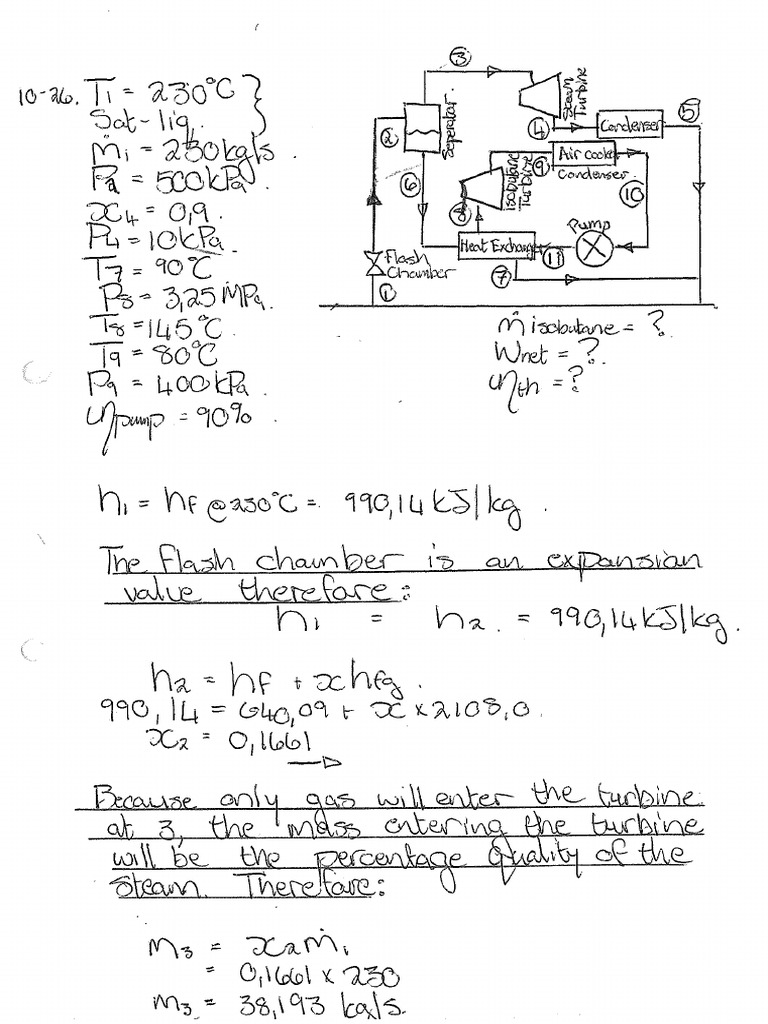 10-26. T1 = 230°C
Sat-liq.
ṁ1 = 230kg/s.
P2 = 500kPa.
x4 = 0,9.
P4 = 10kPa.
T7 = 90°C
P8 = 3,25 MPa.
T8 = 145°C.
T9 = 80°C
P9 = 400kPa.
ηpump = 90%.
③
Steam Turbine
⑤
②
Seperator
④
Condenser
Isobutane Turbine
⑨
Air cooled
Condenser.
⑥
⑩
⑧
Pump
Heat Exchanger
⑪
Flash Chamber
⑦
①
ṁ isobutane = ?
Wnet = ?
ηth = ?
h1 = hf @ 230°C = 990,14 kJ/kg.
The flash chamber is an expansion
valve therefore:
h1 = h2 = 990,14 kJ/kg.
h2 = hf + xhfg.
990,14 = 640,09 + x × 2108,0.
x2 = 0,1661
Because only gas will enter the turbine
at 3, the mass entering the turbine
will be the percentage quality of the
steam. Therefore:
ṁ3 = x2ṁ1
= 0,1661 × 230
ṁ3 = 38,193 kg/s.